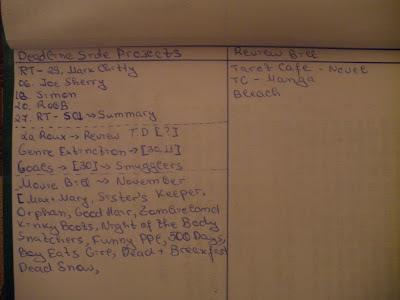 Deadline Side Projects
RT - 29, Mark Chitty
06. Joe Sherry
13. Simon
20. Rob B
27. RT - SQ1 → Summary
La Roux → Review TD [?]
Genre Extinction → [30.11]
Goals → [30] → Smugglers
Movie Bill → November
[Max + Mary, Sister's Keeper,
Orphan, Good Hair, Zombieland
Kinky Boots, Night of the Body
Snatchers, Funny PPL, 500 Days,
Boy Eats Girl, Dead + Breakfast
Dead Snow,
Review Bill
Tarot Cafe - Novel
TC - Manga
Bleach